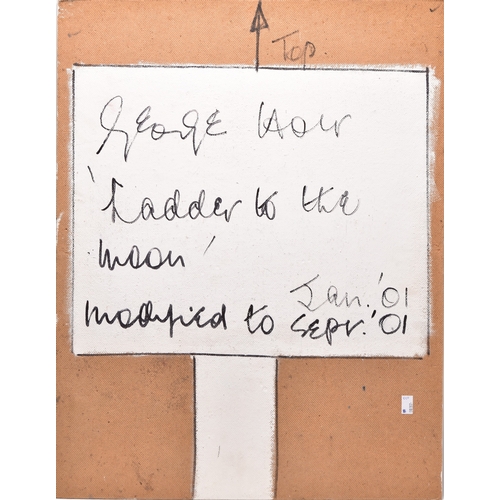 Top.
George Holt
'Ladder to the
moon'
Jan. '01
modified to Sepr. '01